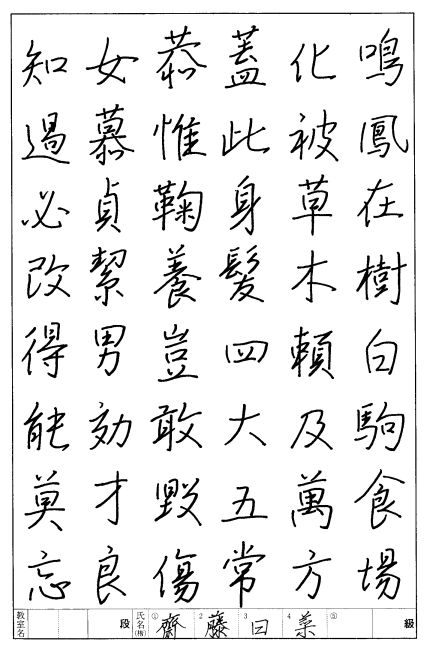 鳴鳳在樹白駒食場
化被草木頼及萬方
蓋此身髪四大五常
恭惟鞠養豈敢毀傷
女慕貞絜男効才良
知過必改得能莫忘
教室名 段 氏名(格) ① 齋 2 藤 3 曰 4 菜 ⑤ 級